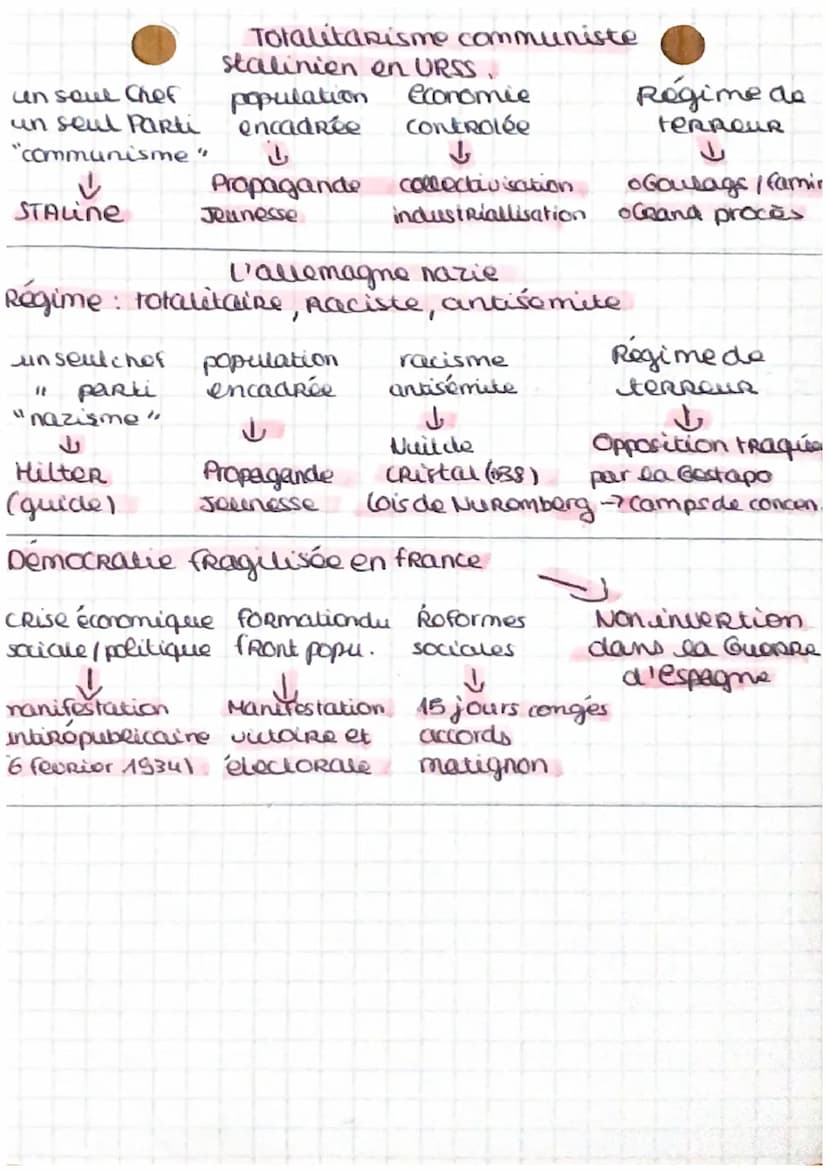 Totalitarisme communiste
stalinien en URSS.
un seul Chef population économie Régime de
un seul Parti encadrée contrôlée terreur
"communisme" ↓ ↓ ↓
↓ Propagande collectivisation o Goulags / famin
STALine Jeunesse industriallisation o Grand procès
L'allemagne nazie
Régime : totalitaire, raciste, antisémite
un seul chef population racisme Régime de
" parti encadrée antisémite terreur
"nazisme" ↓ ↓ ↓
↓ Nuit de Opposition traquée
Hilter Propagande cristal (1938) par la Gestapo
(guide) Jeunesse Lois de Nuremberg → camps de concen.
Démocratie fragilisée en france
crise économique formation du Réformes Non invertion
sociale / politique front popu. sociales dans la Guerre
↓ ↓ ↓ d'espagne
manifestation Manifestation 15 jours congés
antirépublicaine victoire et accords
6 fevrier 1934) électorale matignon